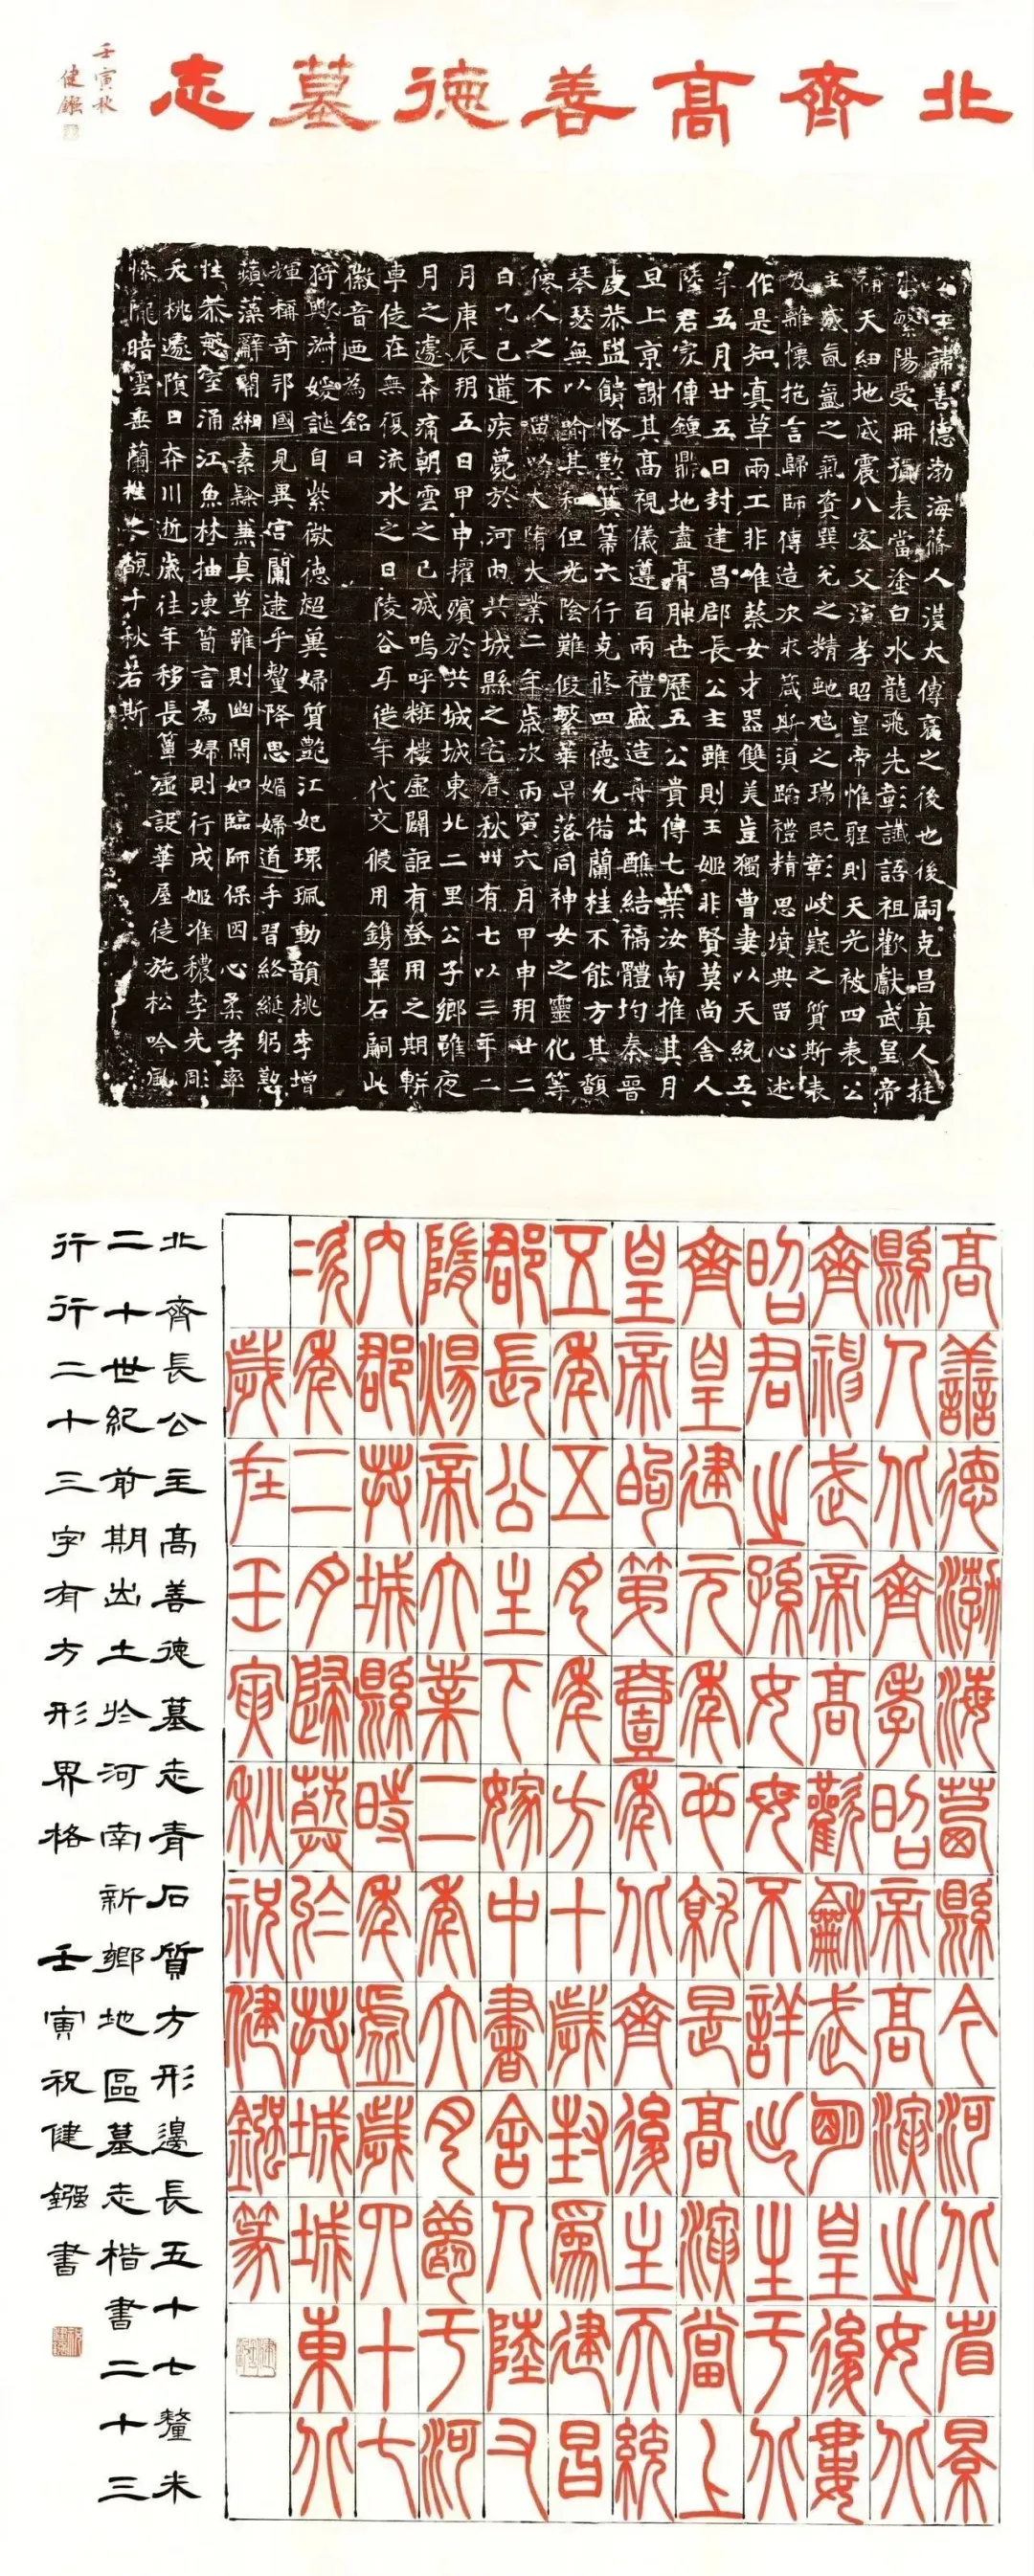 北齊高善德墓志
壬寅秋
健鏹
公主諱善德渤海蓨人漢太傅裒之後也後嗣克昌真人挺
生繁陽受冊預表當塗白水龍飛先彰讖語祖歡獻武皇帝
補天紐地威震八宏父演孝昭皇帝惟聖則天光被四表公
主感氤氳之氣資巽兌之精虵虺之瑞既彰岐嶷之質斯表
及離懷抱言歸師傅造次求箴斯須蹈禮精思墳典留心述
作是知真草兩工非唯蔡女才器雙美豈獨曹妻以天統五
年五月廿五日封建昌郡長公主雖則王姬非賢莫尚舍人
陸君家傳鍾鼎地盡膏腴世歷五公貴傳七葉汝南推其月
旦上京謝其高視儀遵百兩禮盛造舟出醮結褵體均秦晉
虔恭盥饋恪懃箕箒六行克脩四德允偕蘭桂不能方其馥
琴瑟無以喻其和但光陰難假繁華早落同神女之靈化等
德人之不留以大隋大業二年歲次丙寅六月甲申朔廿二
日乙巳遘疾薨於河內共城縣之宅春秋卌有七以三年二
月庚辰朔五日甲申權殯於共城城東北二里公子鄉雖夜
月之遽弃痛朝雲之已滅嗚呼粧樓虛闢詎有登用之期輧
車徒在無復流水之日陵谷徙年代文用鐫翠石嗣此
徽音迺為銘曰
猗歟淑媛誕自紫微德超萬婦質艷江妃環珮動韻桃李增
輝稱奇邦國見異宮闈逮乎釐降思媚婦道手習綖躬懃
蘋藻辭閑緗素隸兼真草雖則幽閑如臨師保因心柔孝率
性恭懃室涌江魚林抽凍筍言為婦則行成姬准穠李先彫
夭桃遽隕日弃川逝歲往年移長簟虛設華屋徒施松吟風
慘隴暗雲垂蘭性之馥千秋若斯
高善德渤海蓨縣今河北省景
縣人北齊孝昭帝高演之女北
齊神武帝高歡龢武明皇後婁
昭君之孫女母不詳出生于北
齊皇建元年也就是高演當上
皇帝的第壹年北齊後主天統
五年五月年方十歲封爲建昌
郡長公主下嫁中書舍人陸又
隋煬帝大業二年六月薨于河
內郡共城縣時年虛歲四十七
次年二月歸葬於共城城東北
歲在壬寅秋祝健鏹篆
北齊長公主高善德墓志青石質方形邊長五十七釐米
二十世紀前期出土於河南新鄉地區墓志楷書二十三
行行二十三字有方形界格 壬寅祝健鏹書